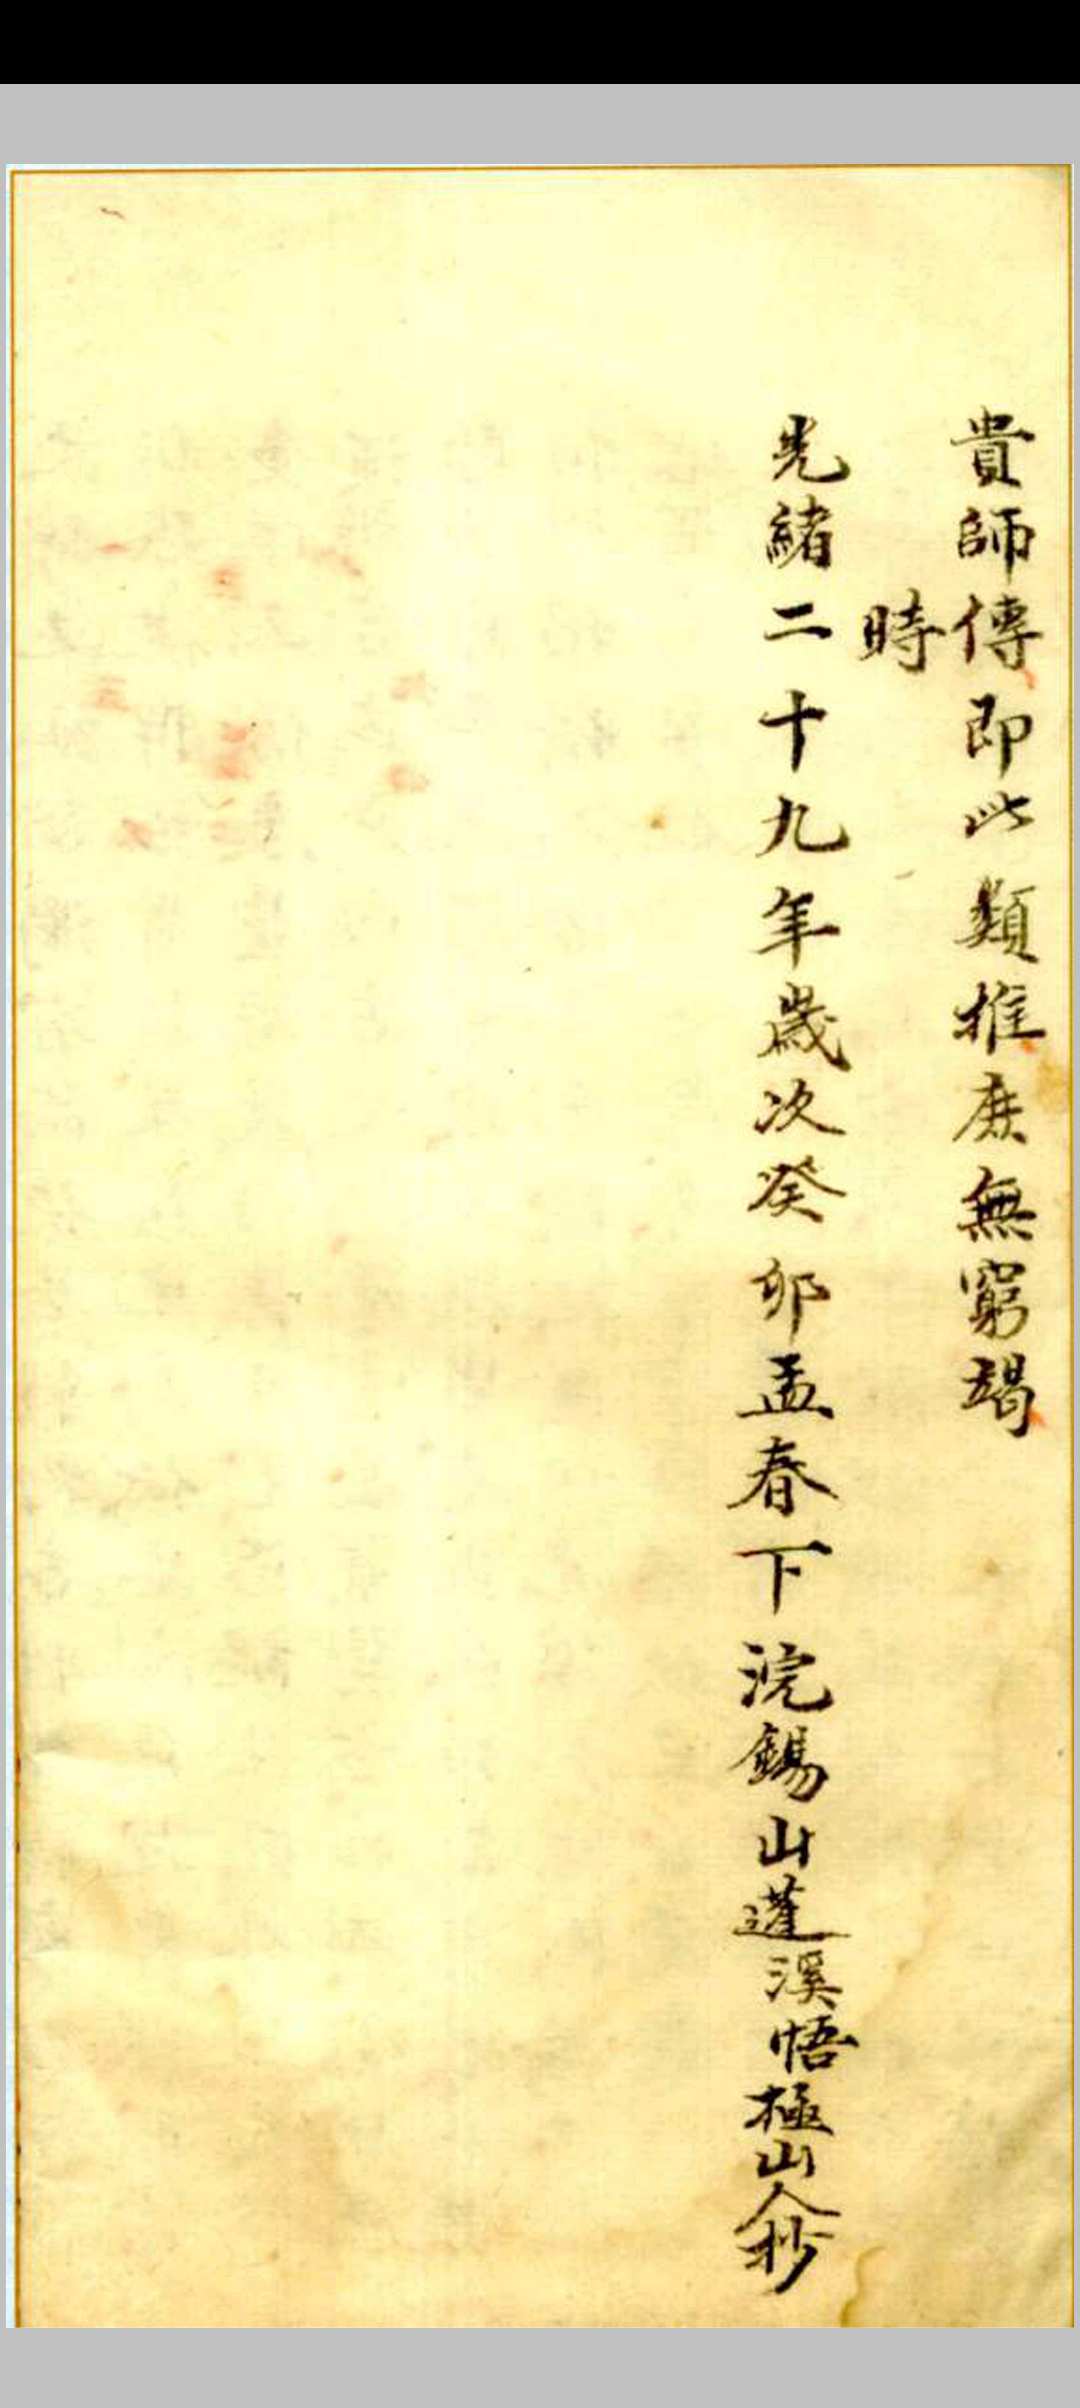 貴師傳即此類推庶無窮竭
時
光緒二十九年歲次癸卯孟春下浣錫山蓬溪悟極山人抄